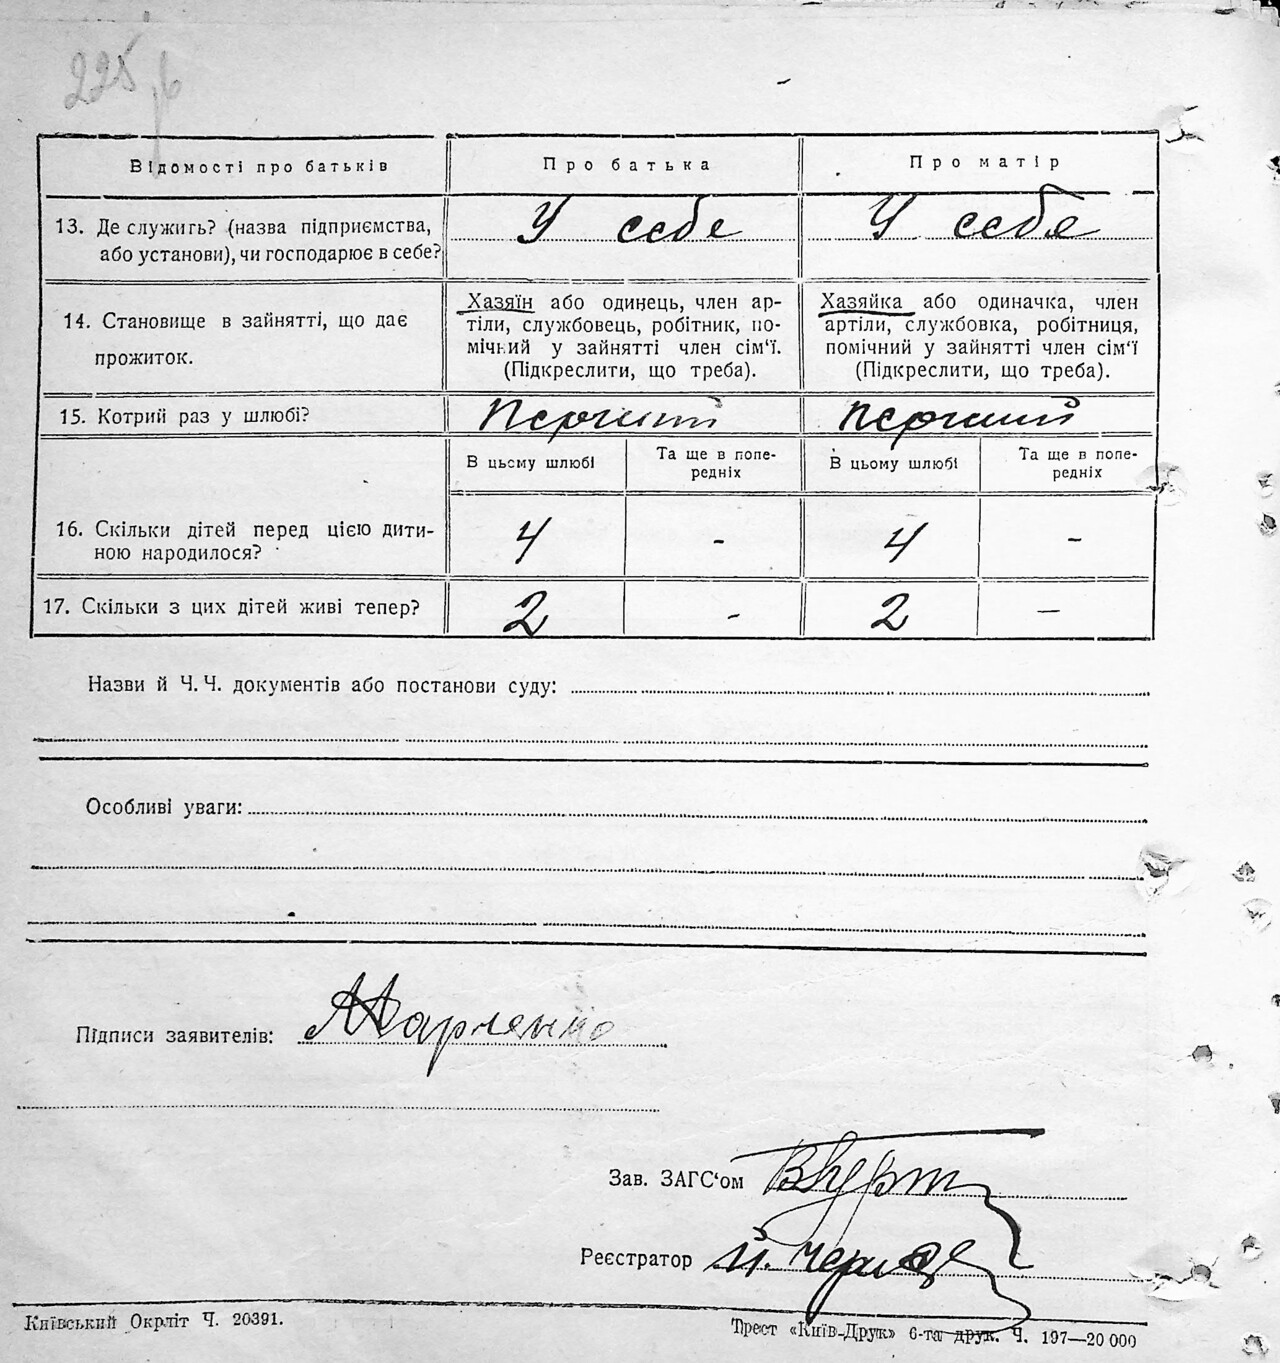 225
Відомості про батьків
Про батька
Про матір
13. Де служить? (назва підприємства,
або установи), чи господарює в себе?
У себе
У себе
14. Становище в зайнятті, що дає
прожиток.
Хазяїн або одинець, член ар-
тіли, службовець, робітник, по-
мічний у зайнятті член сім‘ї.
(Підкреслити, що треба).
Хазяйка або одиначка, член
артіли, службовка, робітниця,
помічний у зайнятті член сім‘ї
(Підкреслити, що треба).
15. Котрий раз у шлюбі?
Перший
Перший
В цьому шлюбі
Та ще в попе-
редніх
В цьому шлюбі
Та ще в попе-
редніх
16. Скільки дітей перед цією дити-
ною народилося?
4
-
4
-
17. Скільки з цих дітей живі тепер?
2
-
2
—
Назви й Ч. Ч. документів або постанови суду:
Особливі уваги:
Підписи заявителів: Марченко
Зав. ЗАГС‘ом
Реєстратор
Київський Окрліт Ч. 20391.
Трест «Київ-Друк» 6-та друк. Ч. 197—20 000